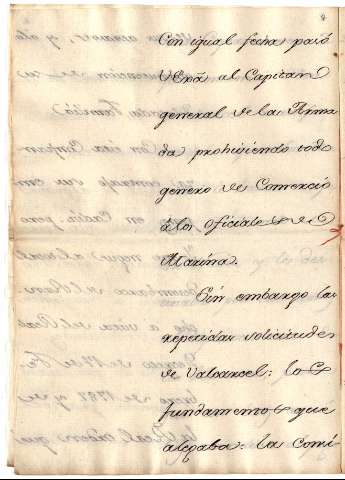 Con igual fecha pasó
V Exã al Capitan
general de la Arma
da prohiviendo todo
genero de Comercio
á los Oficiales de
Marina.
Sin embargo las
repetidas solicitudes
de Valcarcel: los
fundamentos que
alegaba: la Comi